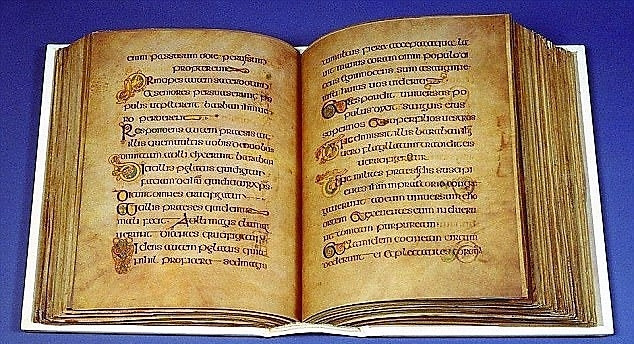 enim passa sum
propter eum
Principes autem sacerdotum
et seniores persuaserunt po
pulis ut peterent barabban ihm ue
ro perderent
Respondens autem praeses ait
illis quem uultis uobis de duobus
dimittam at illi dixerunt baraban
Dicit illis pilatus quid igitur
faciam de ihu qui dicitur xps
Dicunt omnes crucifigatur
illis praeses quid enim
mali fecit At illi magis clama
uerunt dicentes crucifigatur
Uidens autem pilatus quia
nihil proficeret sed magis
tumultus fieret accepta aqua la
uit manus coram omni populo di
cens ego innocens sum a sangine
iusti huius uos uideritis
Et respondit uniuersus po
pulus dixit sanguis eius
super nos et super filios nostros
Tunc dimissit illis baraban ihm
uero flagillatum tradidit eis
ut crucifigeretur
Tunc milites praesidis suscipi
entes ihm in praetorio congre
gauerunt ad eum uniuersam cho
ortem Et exuentes eum induerunt
tonicam purpuream
et clamidem coccineam circum
dederunt ei et plectentes coron